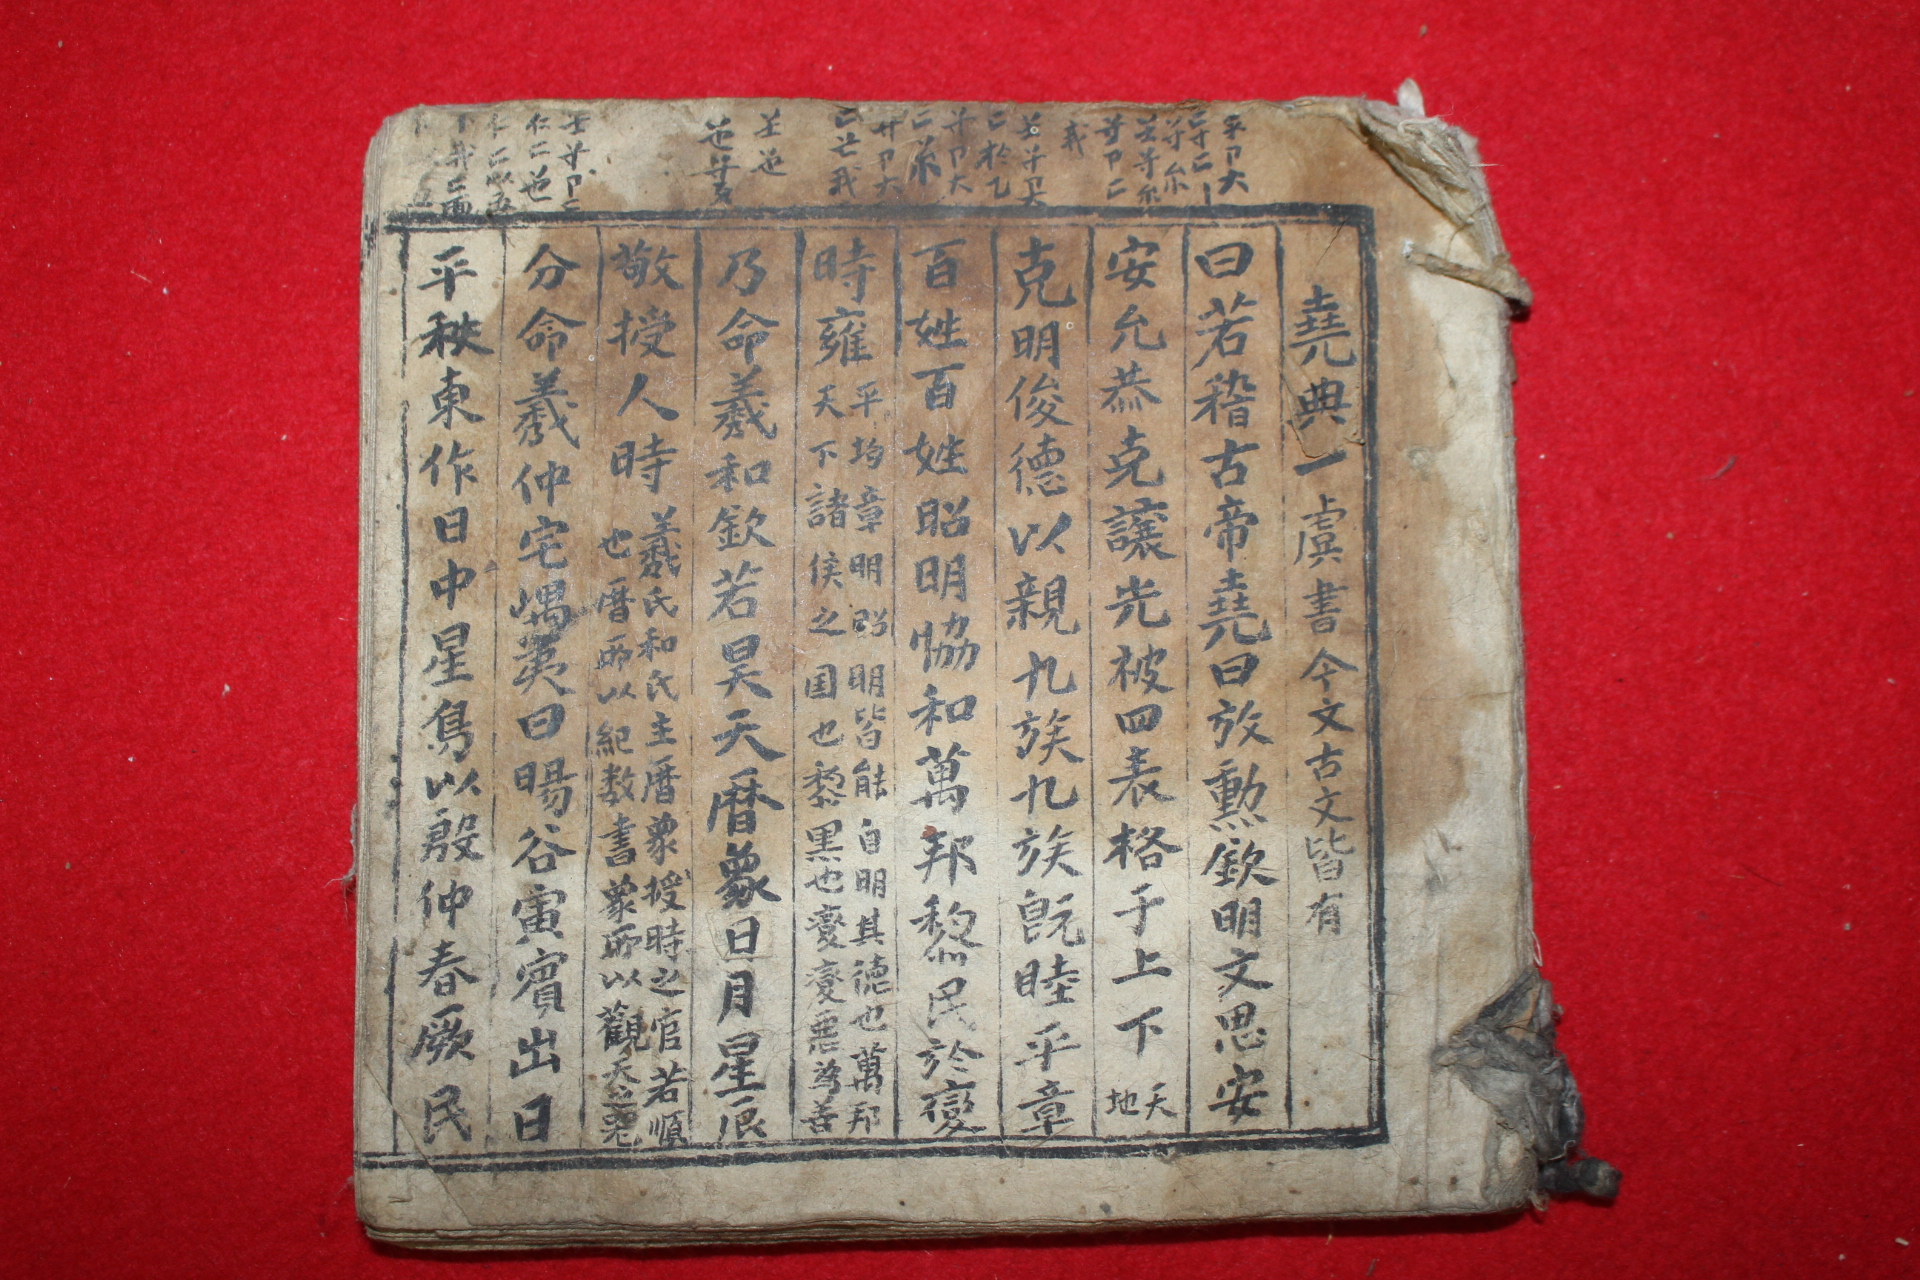 堯典一虞書今文古文皆有
曰若稽古帝堯曰放勳欽明文思安
安允恭克讓光被四表格于上下天地
克明俊德以親九族九族旣睦平章
百姓百姓昭明恊和萬邦黎民於變
時雍平均章明昭明皆能自明其德也萬邦
天下諸侯之国也黎黒也變變悪為善
乃命羲和欽若昊天曆象日月星辰
敬授人時羲氏和氏主曆象授時之官若順
也曆所以紀数書象所以觀天之
分命羲仲宅嵎夷曰暘谷寅賓出日
平秩東作日中星鳥以殷仲春厥民